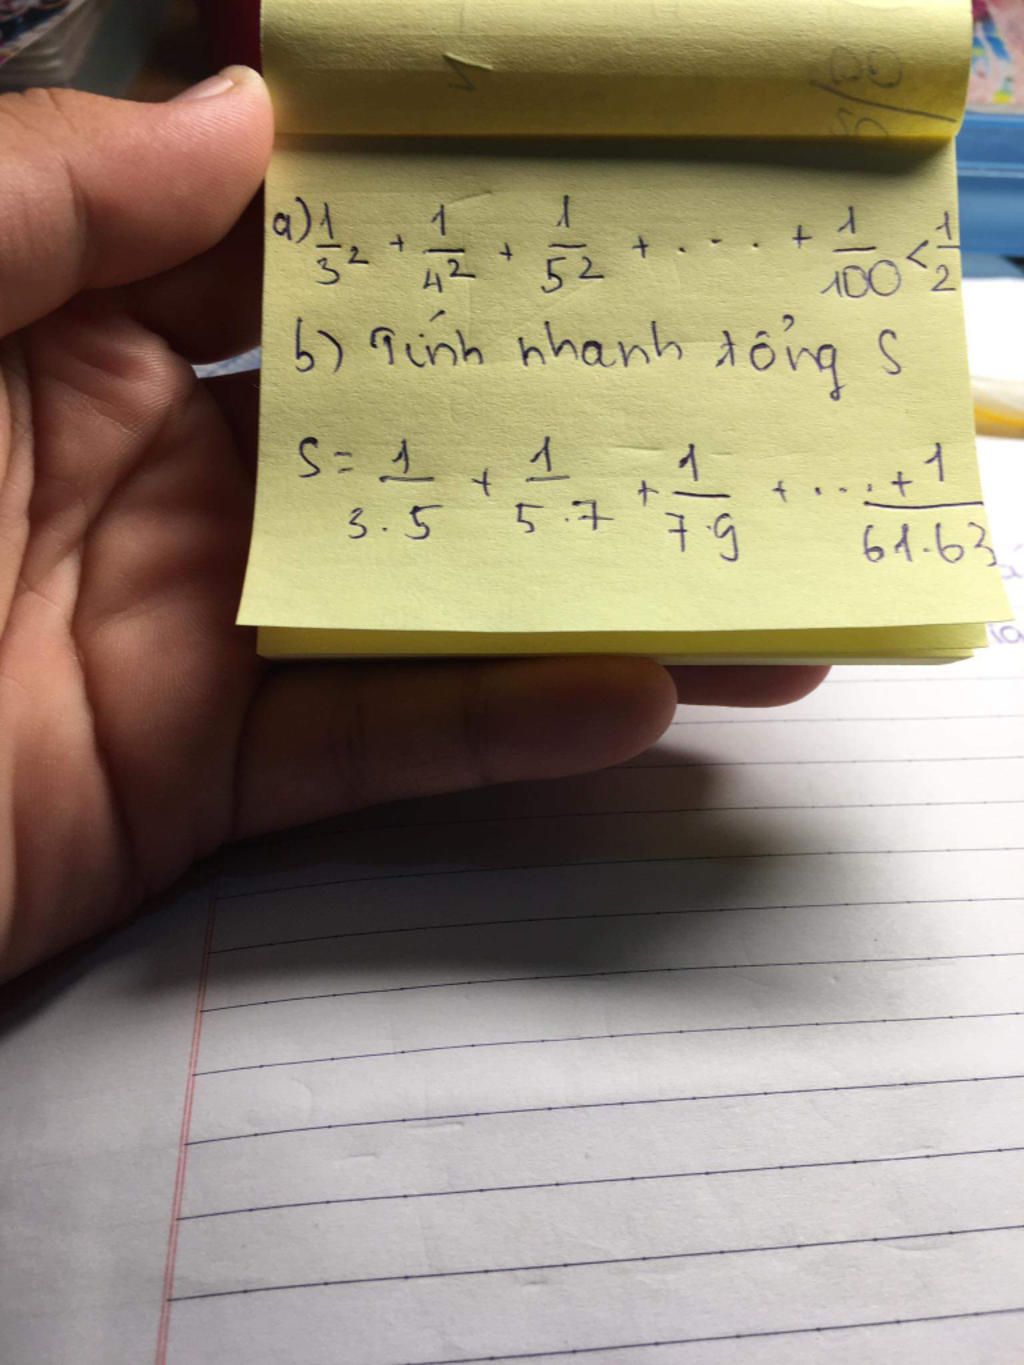 a) 1/3² + 1/4² + 1/5² + . - . . + 1/100 < 1/2
b) Tính nhanh tổng S
S = 1/3.5 + 1/5.7 + 1/7.9 + ... + 1/61.63